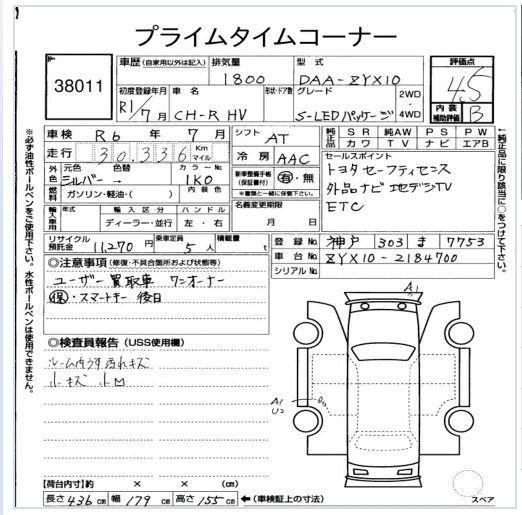 プライムタイムコーナー
38011
車歴 (自家用以外は記入) 排気量 型式 評価点
1800 DAA-ZYX10 4.5
初度登録年月 車名 形状・ドア数 グレード 2WD・4WD
R1/7月 CH-R HV S-LEDパッケージ
内装補助評価 B
車検 R6年 7月 シフト AT
純正品 SR 純AW PS PW
カワ TV ナビ エアB
走行 30,336 Km マイル 冷房 AAC
セールスポイント
外色 元色 色替 カラーNo.
シルバー → 1K0
新車整備手帳(保証書付) 有・無
※書類と一緒に保管して下さい。
トヨタセーフティセンス
燃料 ガソリン・軽油・( ) 内装色
外品ナビ 地デジTV
輸入車用 年式 輸入区分 ハンドル
ディーラー・並行 左・右
名義変更期限
月 日
ETC
リサイクル預託金 11,270円 乗車定員 5人 積載量 t
登録No. 神戸 303 ま 7753
車台No. ZYX10-2184700
シリアルNo.
◎注意事項 (修復・不具合箇所および状態等)
ユーザー買取車 ワンオーナー
保・スマートキー 後日
◎検査員報告 (USS使用欄)
ルーム内うす汚れキズ
小キズ 小凹
A1
A1
U2
【荷台内寸】約 × × (cm)
長さ 436cm 幅 179cm 高さ 155cm ←(車検証上の寸法)
スペア
※必ず油性ボールペンをご使用下さい。水性ボールペンは使用できません。
←純正品に限り該当に○をつけて下さい。